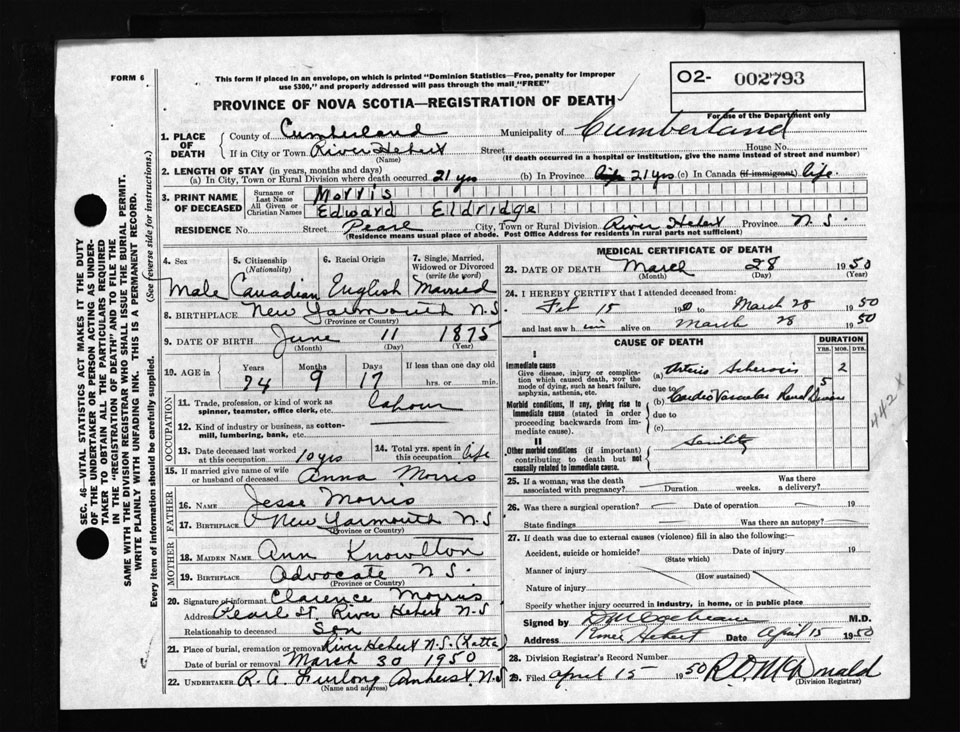 FORM 6
This form if placed in an envelope, on which is printed "Dominion Statistics—Free, penalty for improper
use $300," and properly addressed will pass through the mail "FREE"
O2- 002793
For use of the Department only
PROVINCE OF NOVA SCOTIA—REGISTRATION OF DEATH
1. PLACE OF DEATH
County of Cumberland Municipality of Cumberland
If in City or Town River Hebert Street House No.
(Name) (If death occurred in a hospital or institution, give the name instead of street and number)
2. LENGTH OF STAY (in years, months and days)
(a) In City, Town or Rural Division where death occurred 21 yrs (b) In Province life 21 yrs (c) In Canada (if immigrant) life
3. PRINT NAME OF DECEASED
Surname or Last Name Morris
All Given or Christian Names Edward Eldridge
RESIDENCE No. Street Pearl City, Town or Rural Division River Hebert Province N.S.
(Residence means usual place of abode. Post Office Address for residents in rural parts not sufficient)
4. Sex 5. Citizenship (Nationality) 6. Racial Origin 7. Single, Married, Widowed or Divorced (write the word)
Male Canadian English Married
8. BIRTHPLACE New Yarmouth N.S.
(Province or Country)
9. DATE OF BIRTH June 11 1875
(Month) (Day) (Year)
10. AGE in Years Months Days If less than one day
74 9 17 hrs. or min.
OCCUPATION
11. Trade, profession or kind of work as spinner, teamster, office clerk, etc. labour
12. Kind of industry or business, as cotton-mill, lumbering, bank, etc.
13. Date deceased last worked at this occupation 10 yrs 14. Total yrs. spent in this occupation life
15. If married give name of wife or husband of deceased Anna Morris
FATHER
16. Name Jesse Morris
17. Birthplace New Yarmouth N.S
(Province or Country)
MOTHER
18. MAIDEN NAME Ann Knowlton
19. BIRTHPLACE Advocate N.S.
(Province or Country)
20. Signature of informant Clarence Morris
Address Pearl St. River Hebert N.S
Relationship to deceased Son
21. Place of burial, cremation or removal River Hebert N.S.
Date of burial or removal March 30 1950
22. UNDERTAKER R. A. Furlong Amherst N.S
(Name and address)
MEDICAL CERTIFICATE OF DEATH
23. DATE OF DEATH March 28 1950
(Month) (Day) (Year)
24. I HEREBY CERTIFY that I attended deceased from:
Feb 15 1950 to March 28 1950
and last saw him alive on March 28 1950
CAUSE OF DEATH
DURATION
YRS. MOS. DYS.
I
Immediate cause
Give disease, injury or complication which caused death, not the mode of dying, such as heart failure, asphyxia, asthenia, etc.
(a) Arterio Sclerosis 2
due to
Morbid conditions, if any, giving rise to immediate cause (stated in order proceeding backwards from immediate cause).
(b) Cardio Vascular Renal Disease 5
due to
(c)
II
Other morbid conditions (if important) contributing to death but not causally related to immediate cause.
Senility
442 x
25. If a woman, was the death associated with pregnancy? Duration weeks. Was there a delivery?
26. Was there a surgical operation? Date of operation 19
State findings Was there an autopsy?
27. If death was due to external causes (violence) fill in also the following:—
Accident, suicide or homicide? Date of injury 19
(State which)
Manner of injury
(How sustained)
Nature of injury
Specify whether injury occurred in industry, in home, or in public place
Signed by M.D.
Address River Hebert Date April 15 1950
28. Division Registrar's Record Number
29. Filed April 15 1950 R.D. McDonald
(Division Registrar)
SEC. 46—VITAL STATISTICS ACT MAKES IT THE DUTY
OF THE UNDERTAKER OR PERSON ACTING AS UNDER-
TAKER TO OBTAIN ALL THE PARTICULARS REQUIRED
IN THE "REGISTRATION OF DEATH" AND TO FILE THE
SAME WITH THE DIVISION REGISTRAR WHO SHALL ISSUE THE BURIAL PERMIT.
WRITE PLAINLY WITH UNFADING INK. THIS IS A PERMANENT RECORD.
Every item of information should be carefully supplied. (See reverse side for instructions.)